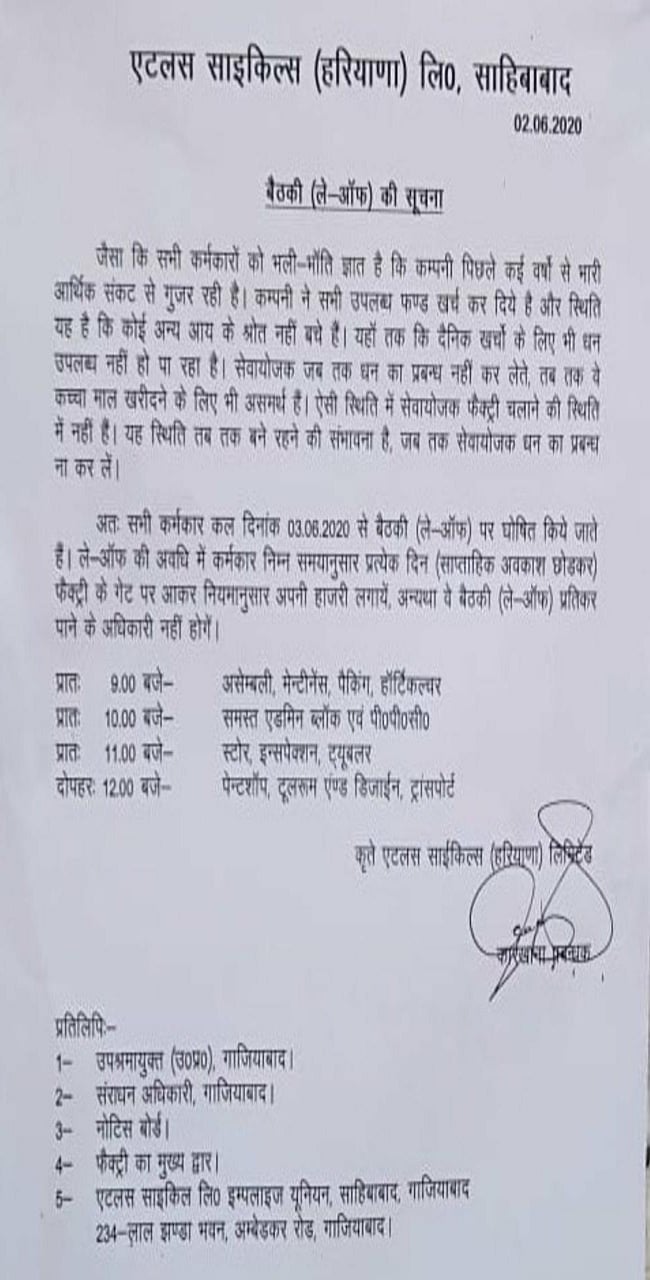 एटलस साइकिल्स (हरियाणा) लि0, साहिबाबाद
02.06.2020
बैठकी (ले–ऑफ) की सूचना
जैसा कि सभी कर्मकारों को भली–भॉति ज्ञात है कि कम्पनी पिछले कई वर्षो से भारी
आर्थिक संकट से गुजर रही है। कम्पनी ने सभी उपलब्ध फण्ड खर्च कर दिये है और स्थिति
यह है कि कोई अन्य आय के श्रोत नहीं बचे है। यहॉ तक कि दैनिक खर्चो के लिए भी धन
उपलब्ध नहीं हो पा रहा है। सेवायोजक जब तक धन का प्रबन्ध नहीं कर लेते, तब तक वे
कच्चा माल खरीदने के लिए भी असमर्थ है। ऐसी स्थिति में सेवायोजक फैक्ट्री चलाने की स्थिति
में नहीं है। यह स्थिति तब तक बने रहने की संभावना है, जब तक सेवायोजक धन का प्रबन्ध
ना कर लें।
अतः सभी कर्मकार कल दिनांक 03.06.2020 से बैठकी (ले–ऑफ) पर घोषित किये जाते
है। ले–ऑफ की अवधि में कर्मकार निम्न समयानुसार प्रत्येक दिन (साप्ताहिक अवकाश छोडकर)
फैक्ट्री के गेट पर आकर नियमानुसार अपनी हाजरी लगायें, अन्यथा वे बैठकी (ले–ऑफ) प्रतिकर
पाने के अधिकारी नहीं होगें।
प्रातः 9.00 बजे– असेम्बली, मेन्टीनेंस, पैकिंग, हॉर्टिकल्चर
प्रातः 10.00 बजे– समस्त एडमिन ब्लॉक एवं पी0पी0सी0
प्रातः 11.00 बजे– स्टोर, इन्सपेक्शन, ट्यूबलर
दोपहरः 12.00 बजे– पेन्टशॉप, टूलरूम एंण्ड डिजाईन, ट्रांसपोर्ट
कृते एटलस साईकिल्स (हरियाणा) लिमिटेड
कारखाना प्रबन्धक
प्रतिलिपिः–
1– उपश्रमायुक्त (उ0प्र0), गाजियाबाद।
2– संराधन अधिकारी, गाजियाबाद।
3– नोटिस बोर्ड।
4– फैक्ट्री का मुख्य द्वार।
5– एटलस साइकिल लि0 इम्पलाइज यूनियन, साहिबाबाद, गाजियाबाद
234–लाल झण्डा भवन, अम्बेडकर रोड, गाजियाबाद।